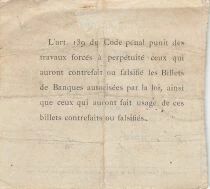 L'art. 139 du Code pénal punit des
travaux forcés à perpétuité ceux qui
auront contrefait ou falsifié les Billets
de Banques autorisées par la loi, ainsi
que ceux qui auront fait usage de ces
billets contrefaits ou falsifiés.